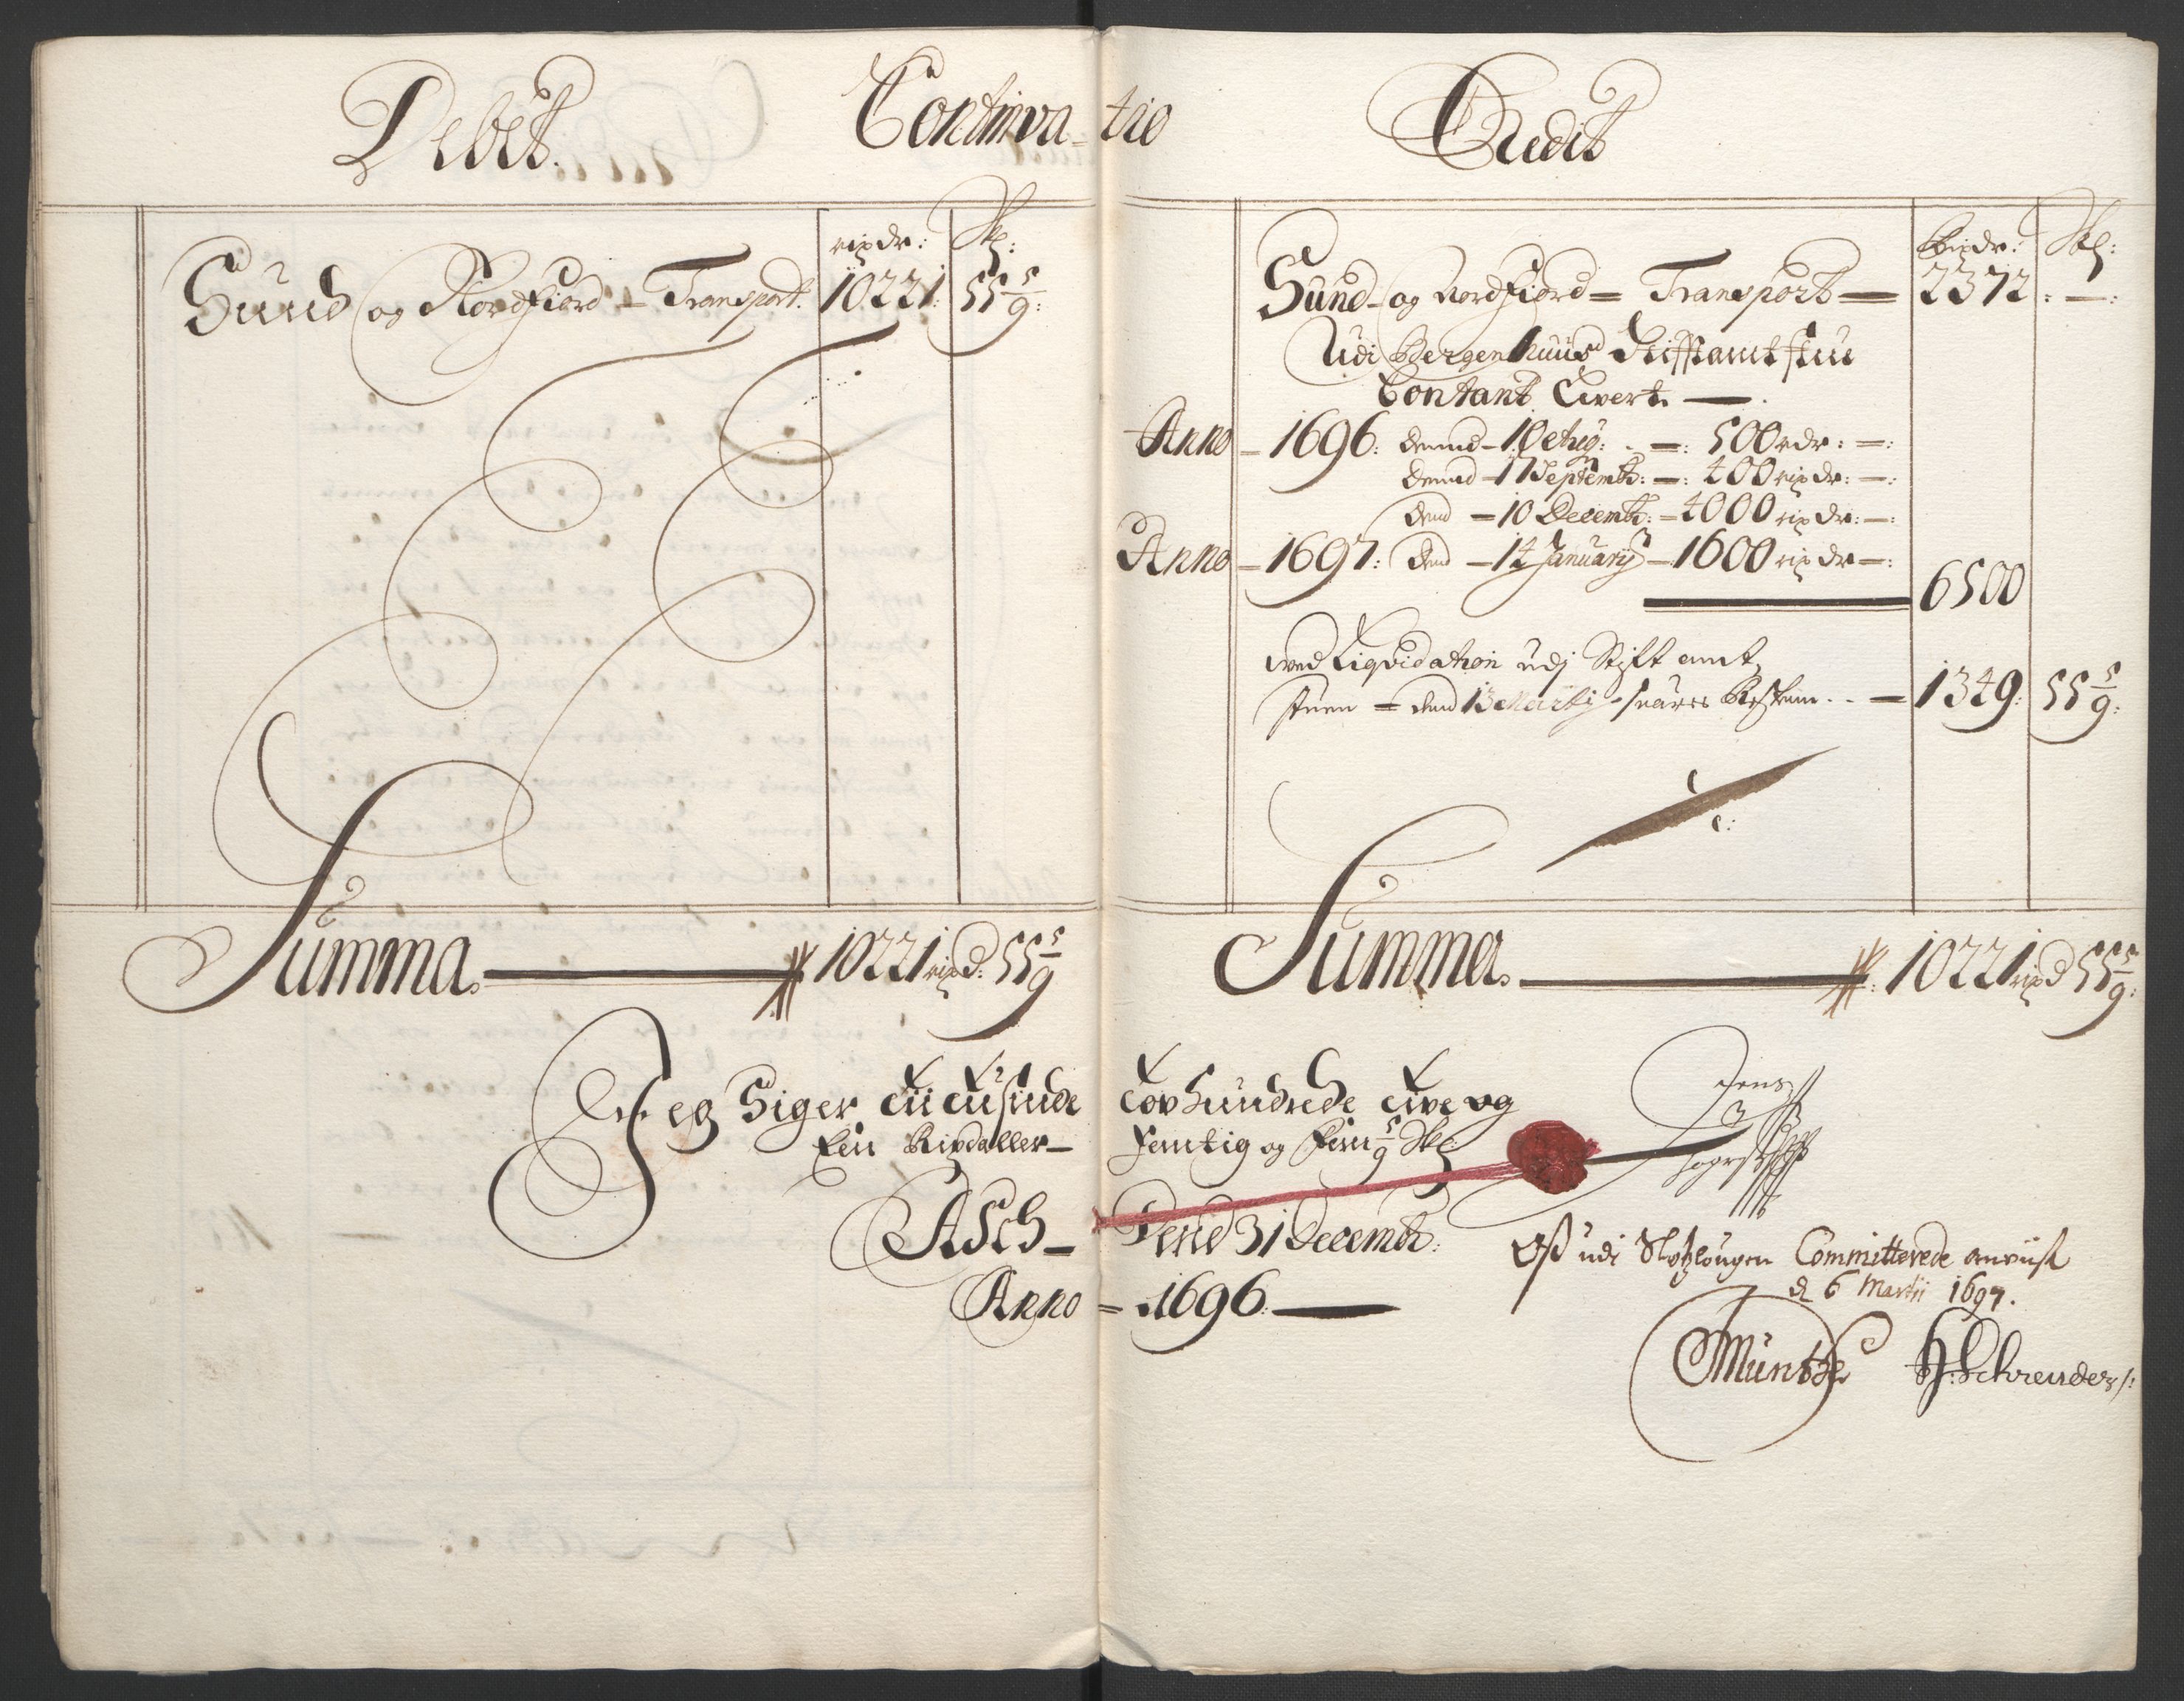 Debet.
Continva-tio
Credit
rixdr: Sk:
Sund og Nordfiord = Transport. 10221: 55 5/9:
Rixdr: Sk:
Sund og Nordfiord = Transport — 2372: —:
Udi Bergenhuus Stifftamtstue
Contant Levert —.
Anno — 1696: dend — 10 Aug: — 500 rdr: —:
dend — 17 Septembr: —: 400 rixdr: —:
dend — 10 Decembr: — 4000 rixdr: —:
Anno — 1697: dend — 14 Januarij — 1600 rixdr —:
6500
ved Liqvidation udj Stift amt
stuen — dend 13 Martij — 1349: 55 5/9:
Summa. — 10221 rixd: 55 5/9
Summa. — 10221 rixd 55 5/9:
Er eg Siger Tii Tusinde Tov Hundrede Tive og
Een Rixdaller — Femtig og Fem 5/9 Sk:
Jens
Asch — Dend 31 Decembr:
Anno — 1696: —
Oss udi Slotzlougen Committerede anviist
d 6 Martii 1697.
Müntze H: Schreuder